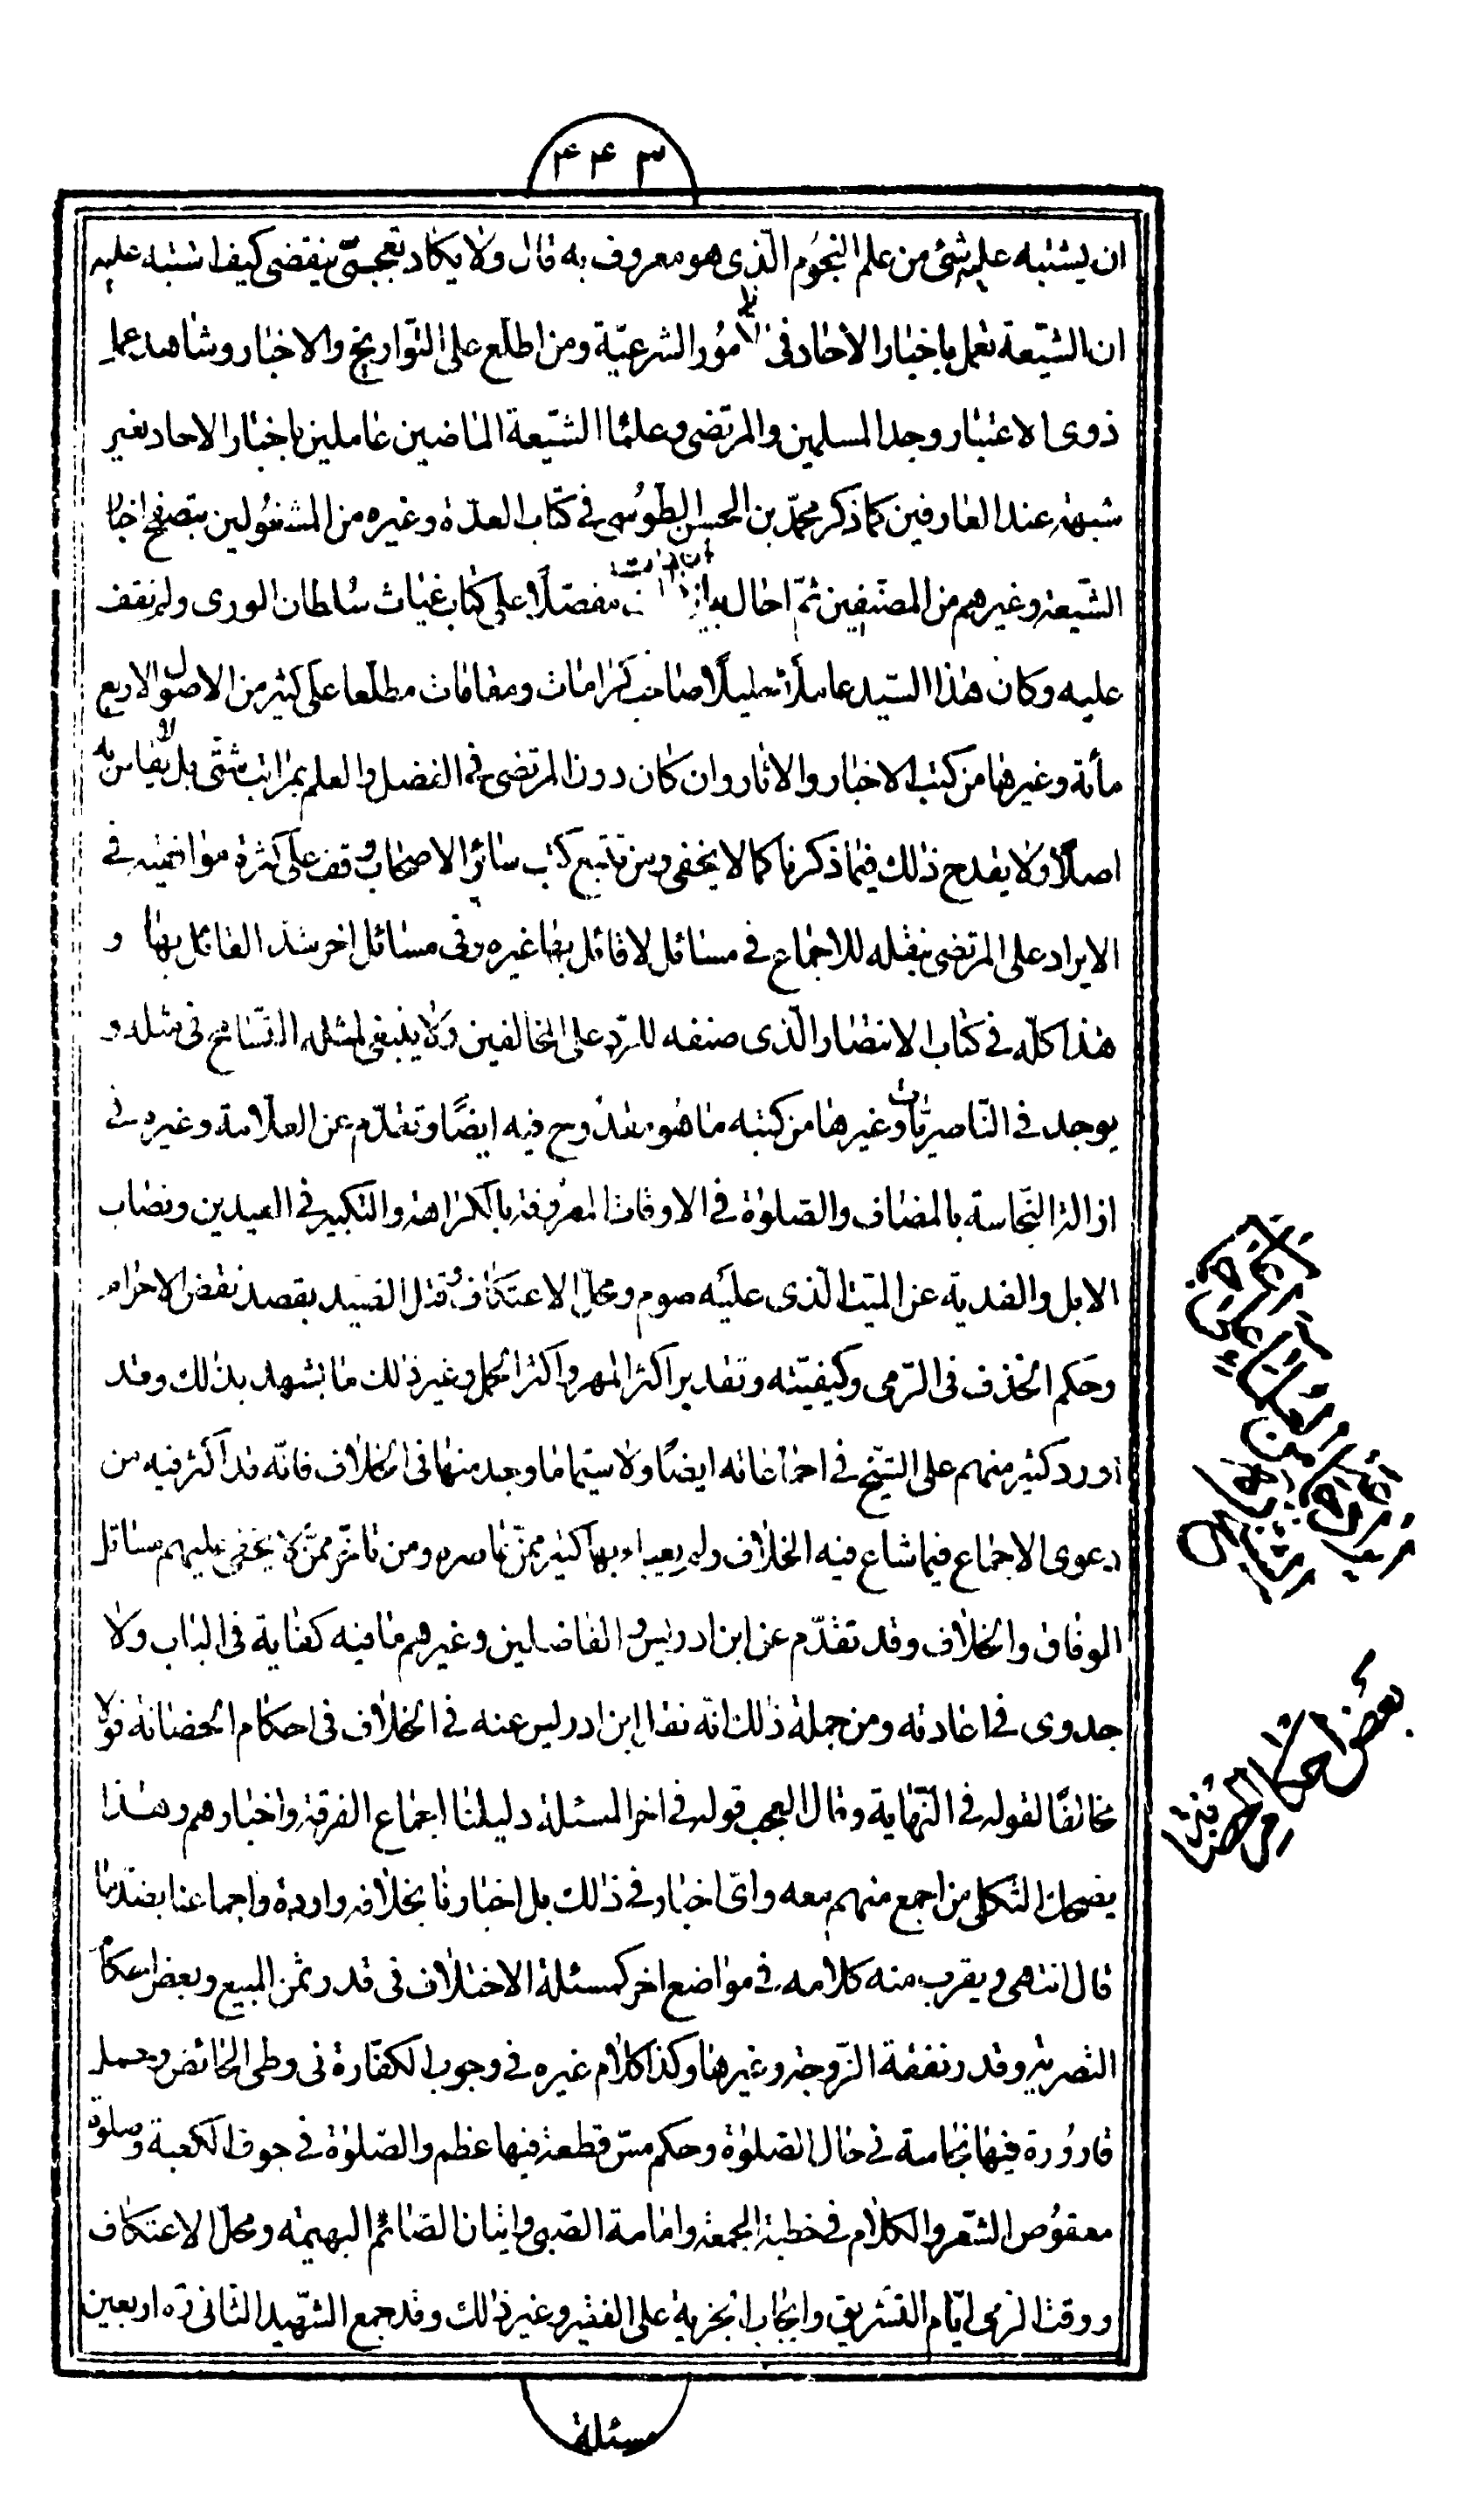 ۴۴۳
ان يشتبه عليه شئ من علم النجوم الّذى هو معروف به قال ولا يكاد تعجبى ينقضى كيف اشتبه عليه
ان الشيعة تعمل باخبار الاحاد فى الامور الشرعيّة ومن اطلع على التواريخ والاخبار وشاهد عمل
ذوى الاعتبار وجد المسلمين والمرتضى وعلماء الشيعة الماضين عاملين باخبار الاحاد بغير
شبهة عند العارفين كما ذكر محمّد بن الحسن الطوسى فى كتاب العدّة وغيره من المشغولين بتصفح اخبار
الشيعة وغيرهم من المصنفين ثمّ احال مفصّلًا على كتاب غياث سلطان الورى ولم نقف
عليه وكان هذا السّيد عاملًا جليلًا صاحب كرامات ومقامات مطلعا على كثير من الاصول الاربع
مأة وغيرها من كتب الاخبار والاثار وان كان دون المرتضى فى الفضل والعلم بمراتب شتّى بل لا يقاس به
اصلًا ولا يقدح ذلك فيما ذكرنا كما لا يخفى ومن تتبع كتب سائر الاصحاب وقف على كثرة مواضيته فى
الايراد على المرتضى بنقله للاجماع فى مسائل لا قائل بها غيره وفى مسائل اخر شذ القائل بها و
هذا كلّه فى كتاب الانتصار الّذى صنفه للرّد على المخالفين ولا ينبغى لمثله التّسامح فى مثله و
يوجد فى النّاصريّات وغيرها من كتبه ما هو مقدوح فيه ايضًا وتقدّم عن العلّامة وغيره فى
ازالة النّجاسة بالمضاف والصّلوة فى الاوقات المعروفة بالكراهة والتكبير فى العيدين ونصاب
الابل والفدية عن الميّت الّذى عليه صوم ومحلّ الاعتكاف وقتل الصيد بقصد نقض الاحرام
وحكم الخذف فى الرّمى وكيفيّته وتقدير اكثر المهر واكثر الحمل وغير ذلك ما يشهد بذلك وقد
اورد كثير منهم على الشّيخ فى اجماعاته ايضًا ولا سيّما ما وجد منها فى الخلاف فانّه قد اكثر فيه من
دعوى الاجماع فيما شاع فيه الخلاف ولم يعباء بها كثير ممّن عاصره ومن تاخّر ممّن لا يخفى عليهم مسائل
الوفاق والخلاف وقد تقدّم عن ابن ادريس والفاضلين وغيرهم ما فيه كفاية فى الباب ولا
جدوى فى اعادته ومن جملة ذلك انّه نقل ابن ادريس عنه فى الخلاف فى احكام الحضانة قولا
مخالفًا لقوله فى النّهاية وقال العجب قوله فى اخر المسئلة دليلنا اجماع الفرقة واخبارهم وهذا
يضحك الثكلى من اجمع منهم معه واىّ اخبار فى ذلك بل اخبارنا بخلافه واردة واجماعنا بضدّ ما
قال انتهى ويقرب منه كلامه فى مواضع اخر كمسئلة الاختلاف فى قدر ثمن المبيع وبعض احكام
التصرية وقدر نفقة الزّوجة وغيرها وكذا كلام غيره فى وجوب الكفّارة فى وطى الحائض وحمل
قارورة فيها نجاسة فى حال الصّلوة وحكم مسّ قطعة فيها عظم والصّلوة فى جوف الكعبة وصلوة
معقوص الشّعر والكلام فى خطبة الجمعة وامامة الصّبى واتيان الصّائم البهيمة ومحلّ الاعتكاف
ووقت الرّمى ايّام التشريق وايجاب الجزية على الفقير وغير ذلك وقد جمع الشّهيد الثانى ره اربعين
مسئلة